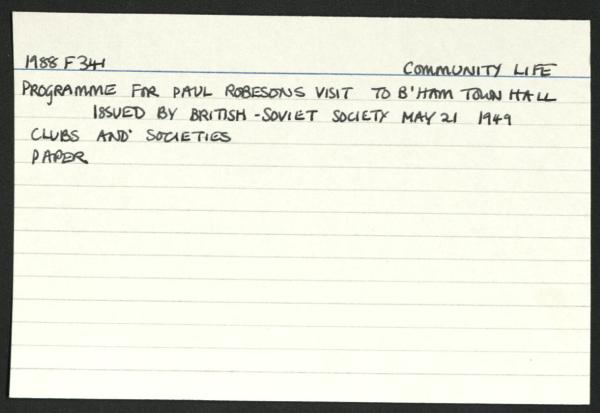 1988 F 341 COMMUNITY LIFE
PROGRAMME FOR PAUL ROBESONS VISIT TO B'HAM TOWN HALL
ISSUED BY BRITISH-SOVIET SOCIETY MAY 21 1949
CLUBS AND SOCIETIES
PAPER